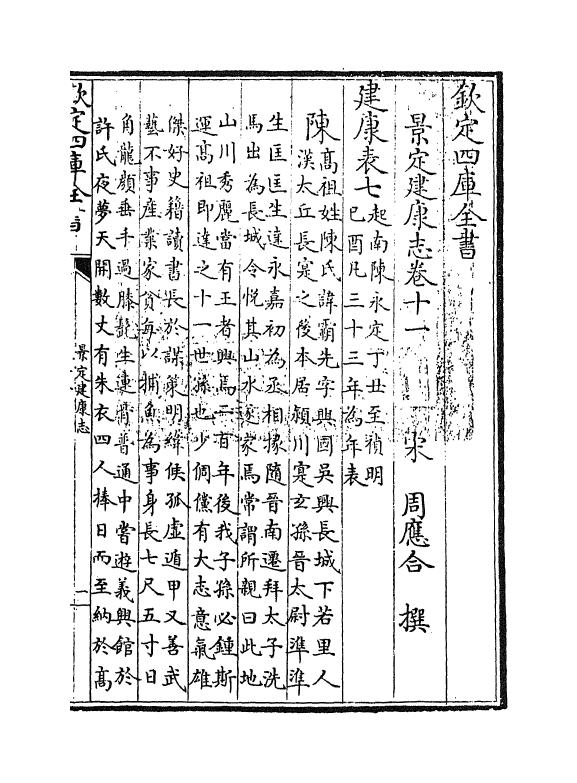 欽定四庫全書
景定建康志卷十一 宋 周應合 撰
建康表七 起南陳永定丁丑至禎明
己酉凡三十三年為年表
陳 高祖姓陳氏諱霸先字興國吳興長城下若里人
漢太丘長寔之後本居潁川寔玄孫晉太尉準準
生匡匡生達永嘉初為丞相掾隨晉南遷拜太子洗
馬出為長城令悅其山水遂家焉常謂所親曰此地
山川秀麗當有王者興焉二百年後我子孫必鍾斯
運高祖即達之十一世孫也少倜儻有大志意氣雄
傑好史籍讀書長於謀策明緯候孤虛遁甲又善武
藝不事產業家貧每以捕魚為事身長七尺五寸日
角龍顏垂手過膝 生連 普通中嘗遊義興館於
許氏夜夢天開數丈有朱衣四人捧日而至納於高
欽定四庫全書
景定建康志
一